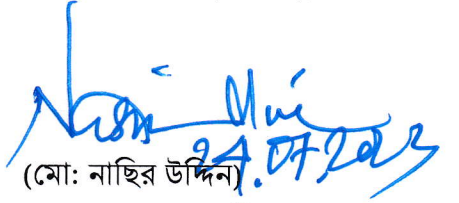 24.07.2023
(মো: নাছির উদ্দিন)